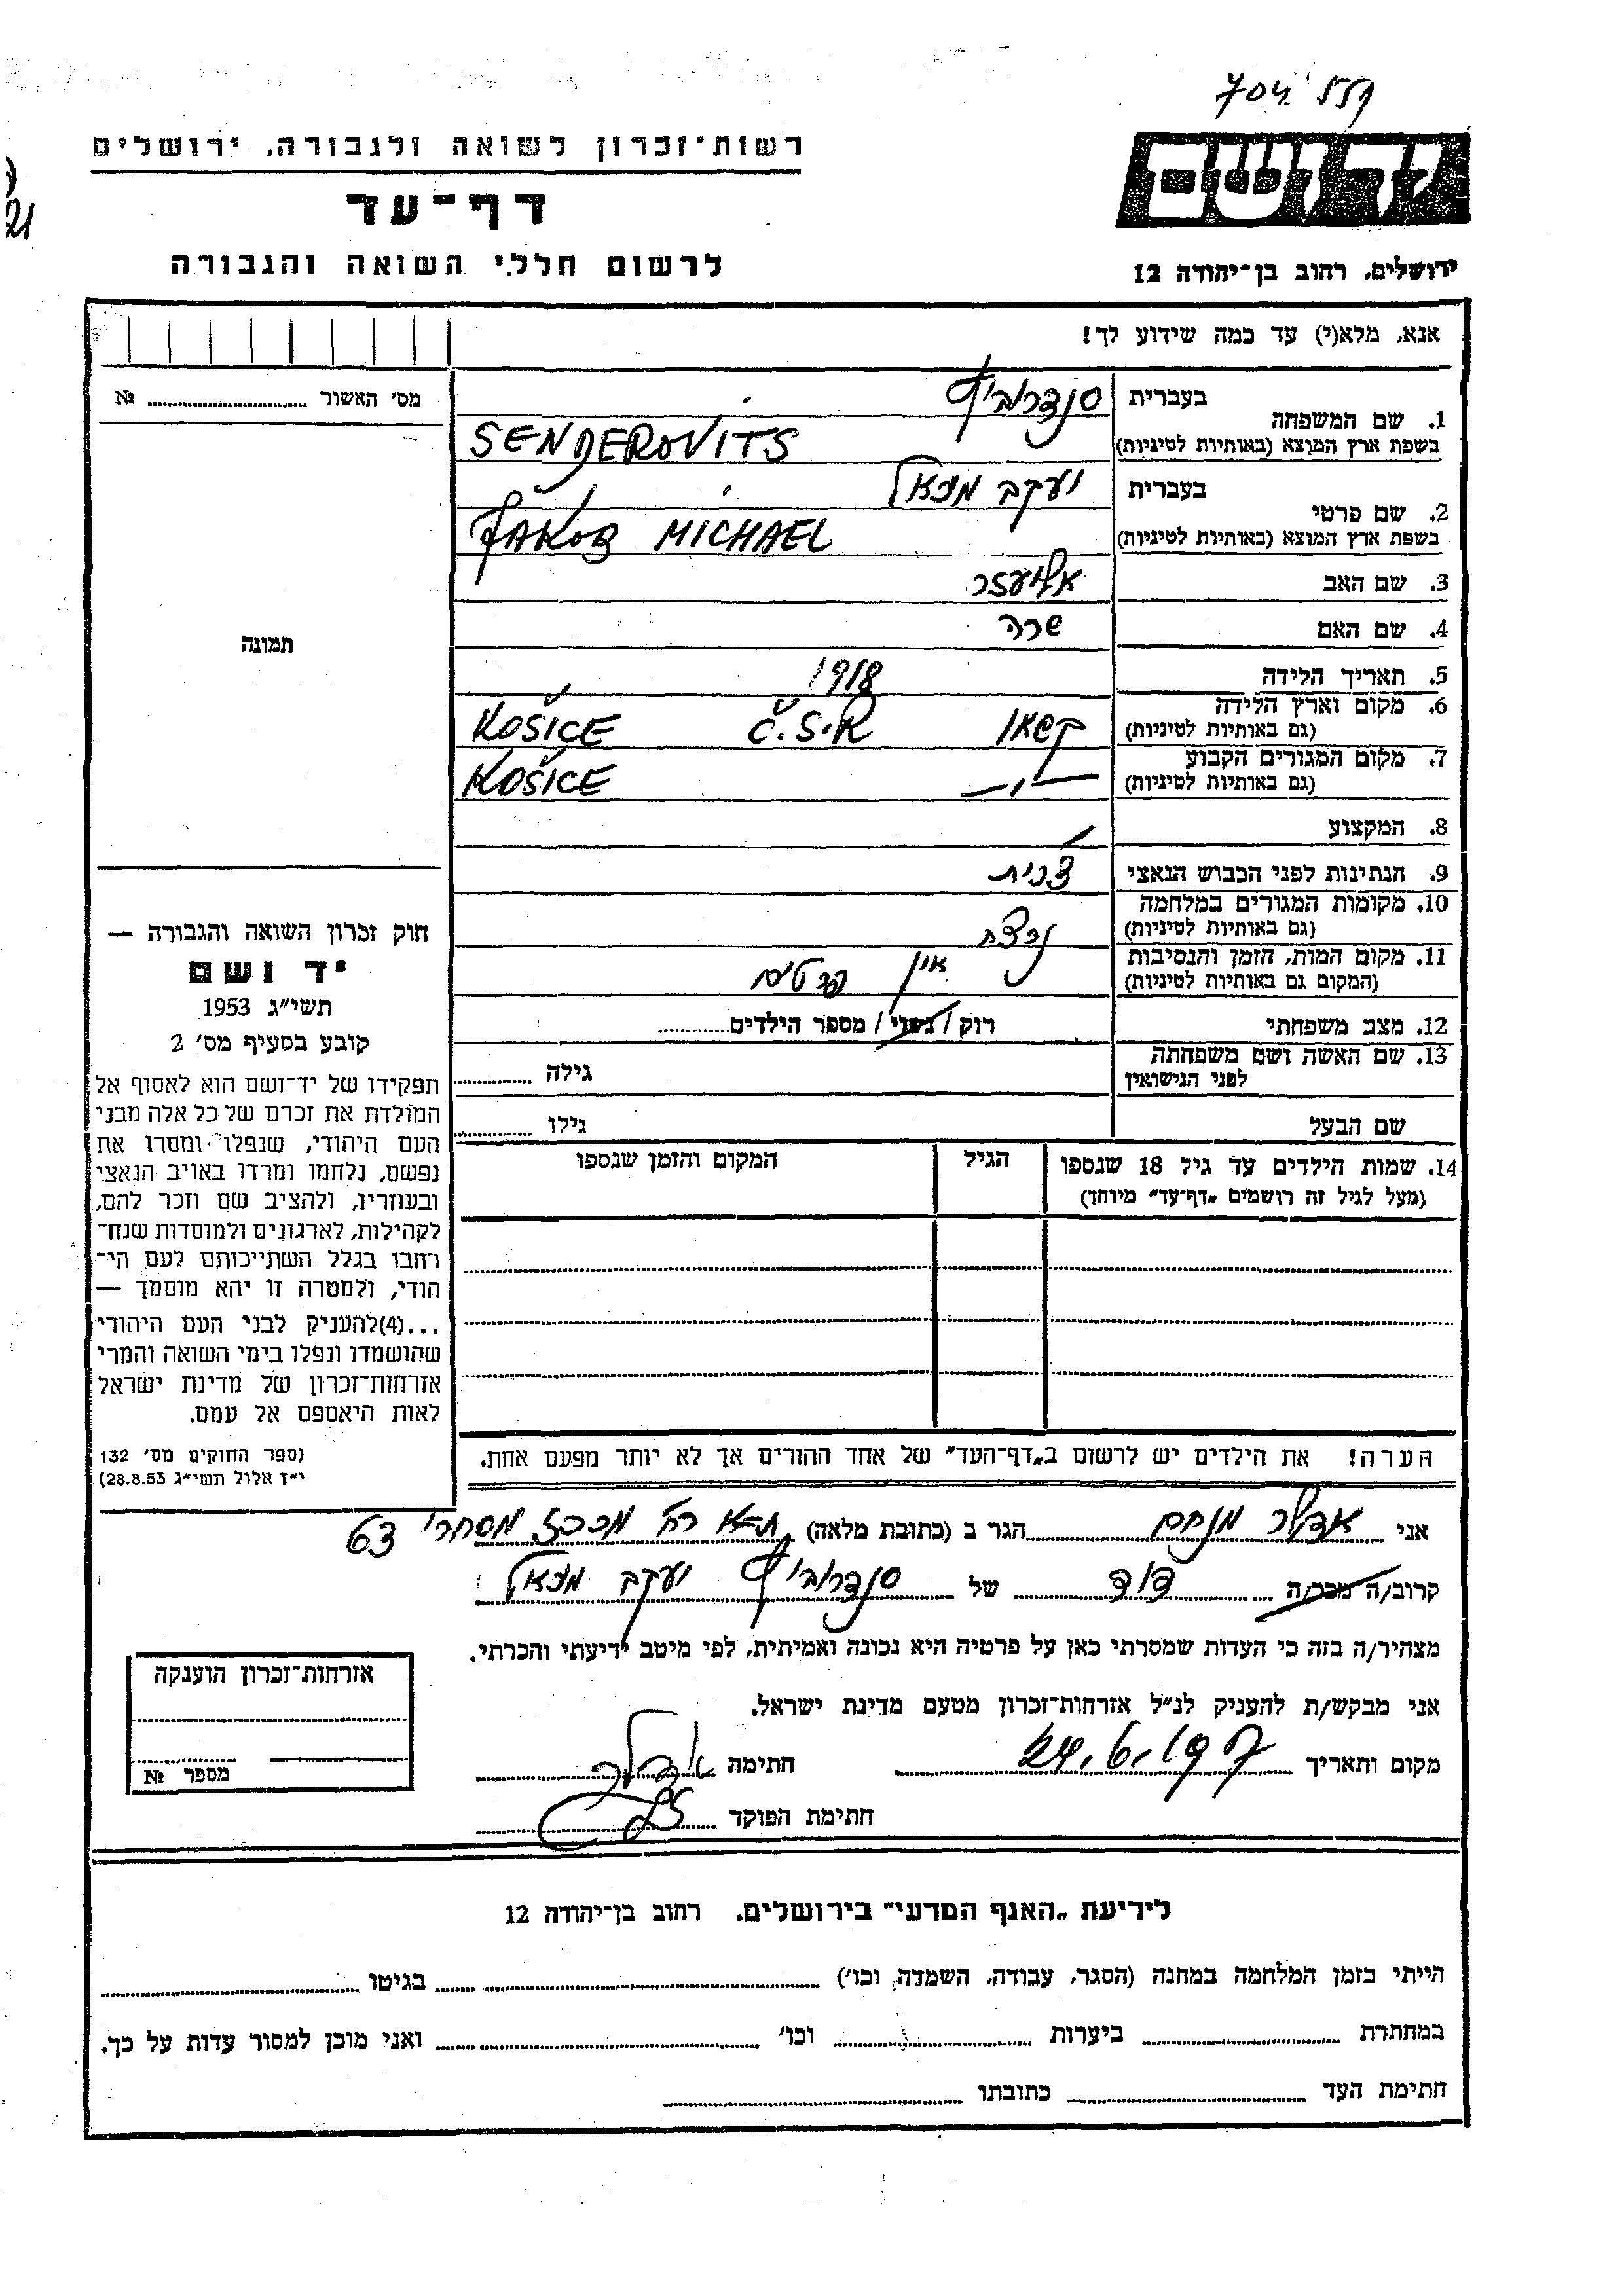 רשות־זכרון לשואה ולגבורה, ירושלים
דף־עד
לרשום חללי השואה והגבורה
יד ושם
ירושלים, רחוב בן־יהודה 12
אנא, מלא(י) עד כמה שידוע לך!
מס׳ האשור № 
1. שם המשפחה בעברית סנדרוביץ
בשפת ארץ המוצא (באותיות לטיניות) SENDEROVITS
2. שם פרטי בעברית יעקב מיכאל
בשפת ארץ המוצא (באותיות לטיניות) JAKOB MICHAEL
3. שם האב אליעזר
4. שם האם שרה
5. תאריך הלידה 1918
6. מקום וארץ הלידה (גם באותיות לטיניות) קשאו Č.S.R KOŠICE
7. מקום המגורים הקבוע (גם באותיות לטיניות) —״— KOŠICE
8. המקצוע
9. הנתינות לפני הכבוש הנאצי
10. מקומות המגורים במלחמה (גם באותיות לטיניות)
11. מקום המות, הזמן והנסיבות (המקום גם באותיות לטיניות) אין פרטים
12. מצב משפחתי רוק / נשוי / מספר הילדים
13. שם האשה ושם משפחתה לפני הנישואין גילה
שם הבעל גילו
14. שמות הילדים עד גיל 18 שנספו הגיל המקום והזמן שנספו
(מעל לגיל זה רושמים „דף־עד״ מיוחד)
הערה! את הילדים יש לרשום ב„דף־העד״ של אחד ההורים אך לא יותר מפעם אחת.
תמונה
חוק זכרון השואה והגבורה —
יד ושם
תשי״ג 1953
קובע בסעיף מס׳ 2
תפקידו של יד־ושם הוא לאסוף אל
המולדת את זכרם של כל אלה מבני
העם היהודי, שנפלו ומסרו את
נפשם, נלחמו ומרדו באויב הנאצי
ובעוזריו, ולהציב שם וזכר להם,
לקהילות, לארגונים ולמוסדות שנח־
רחבו בגלל השתייכותם לעם הי־
הודי, ולמטרה זו יהא מוסמך —
...(4)להעניק לבני העם היהודי
שהושמדו ונפלו בימי השואה והמרי
אזרחות־זכרון של מדינת ישראל
לאות היאספם אל עמם.
(ספר החוקים מס׳ 132
י״ז אלול תשי״ג 28.8.53)
אני אדלר מנחם הגר ב (כתובת מלאה) ת״א רח׳ מרכז מסחרי 63
קרוב/ה מכר/ה דוד של סנדרוביץ יעקב מיכאל
מצהיר/ה בזה כי העדות שמסרתי כאן על פרטיה היא נכונה ואמיתית, לפי מיטב ידיעתי והכרתי.
אני מבקש/ת להעניק לנ״ל אזרחות־זכרון מטעם מדינת ישראל.
מקום ותאריך 24.6.1957 חתימה אדלר
חתימת הפוקד
אזרחות־זכרון הוענקה
מספר №
לידיעת „האגף המדעי״ בירושלים. רחוב בן־יהודה 12
הייתי בזמן המלחמה במחנה (הסגר, עבודה, השמדה, וכו׳) בגיטו
במחתרת ביערות וכו׳ ואני מוכן למסור עדות על כך.
חתימת העד כתובתו